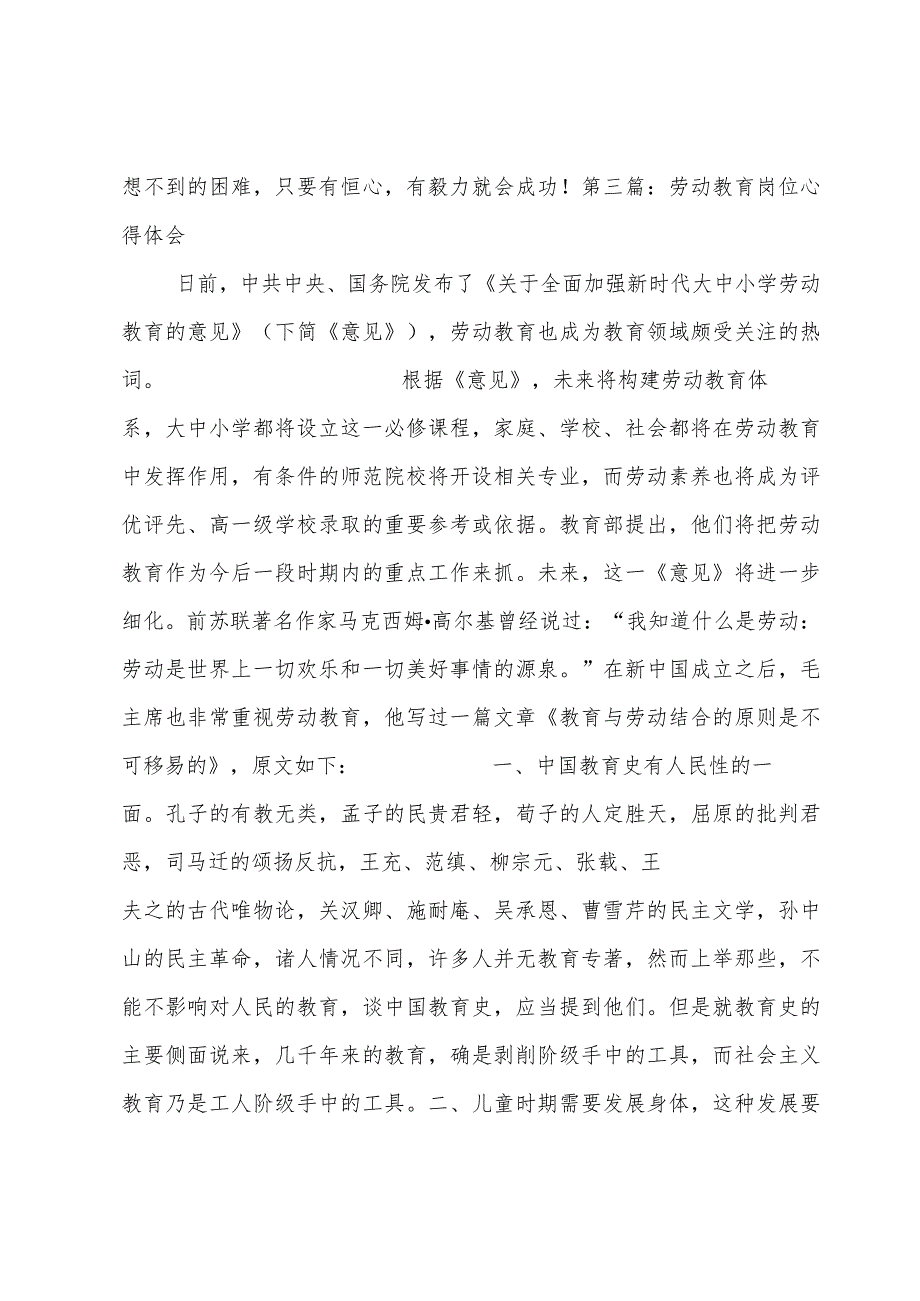 想不到的困难，只要有恒心，有毅力就会成功！第三篇：劳动教育岗位心
得体会
日前，中共中央、国务院发布了《关于全面加强新时代大中小学劳动
教育的意见》（下简《意见》），劳动教育也成为教育领域颇受关注的热
词。 根据《意见》，未来将构建劳动教育体
系，大中小学都将设立这一必修课程，家庭、学校、社会都将在劳动教育
中发挥作用，有条件的师范院校将开设相关专业，而劳动素养也将成为评
优评先、高一级学校录取的重要参考或依据。教育部提出，他们将把劳动
教育作为今后一段时期内的重点工作来抓。未来，这一《意见》将进一步
细化。前苏联著名作家马克西姆•高尔基曾经说过：“我知道什么是劳动：
劳动是世界上一切欢乐和一切美好事情的源泉。”在新中国成立之后，毛
主席也非常重视劳动教育，他写过一篇文章《教育与劳动结合的原则是不
可移易的》，原文如下： 一、中国教育史有人民性的一
面。孔子的有教无类，孟子的民贵君轻，荀子的人定胜天，屈原的批判君
恶，司马迁的颂扬反抗，王充、范缜、柳宗元、张载、王
夫之的古代唯物论，关汉卿、施耐庵、吴承恩、曹雪芹的民主文学，孙中
山的民主革命，诸人情况不同，许多人并无教育专著，然而上举那些，不
能不影响对人民的教育，谈中国教育史，应当提到他们。但是就教育史的
主要侧面说来，几千年来的教育，确是剥削阶级手中的工具，而社会主义
教育乃是工人阶级手中的工具。二、儿童时期需要发展身体，这种发展要